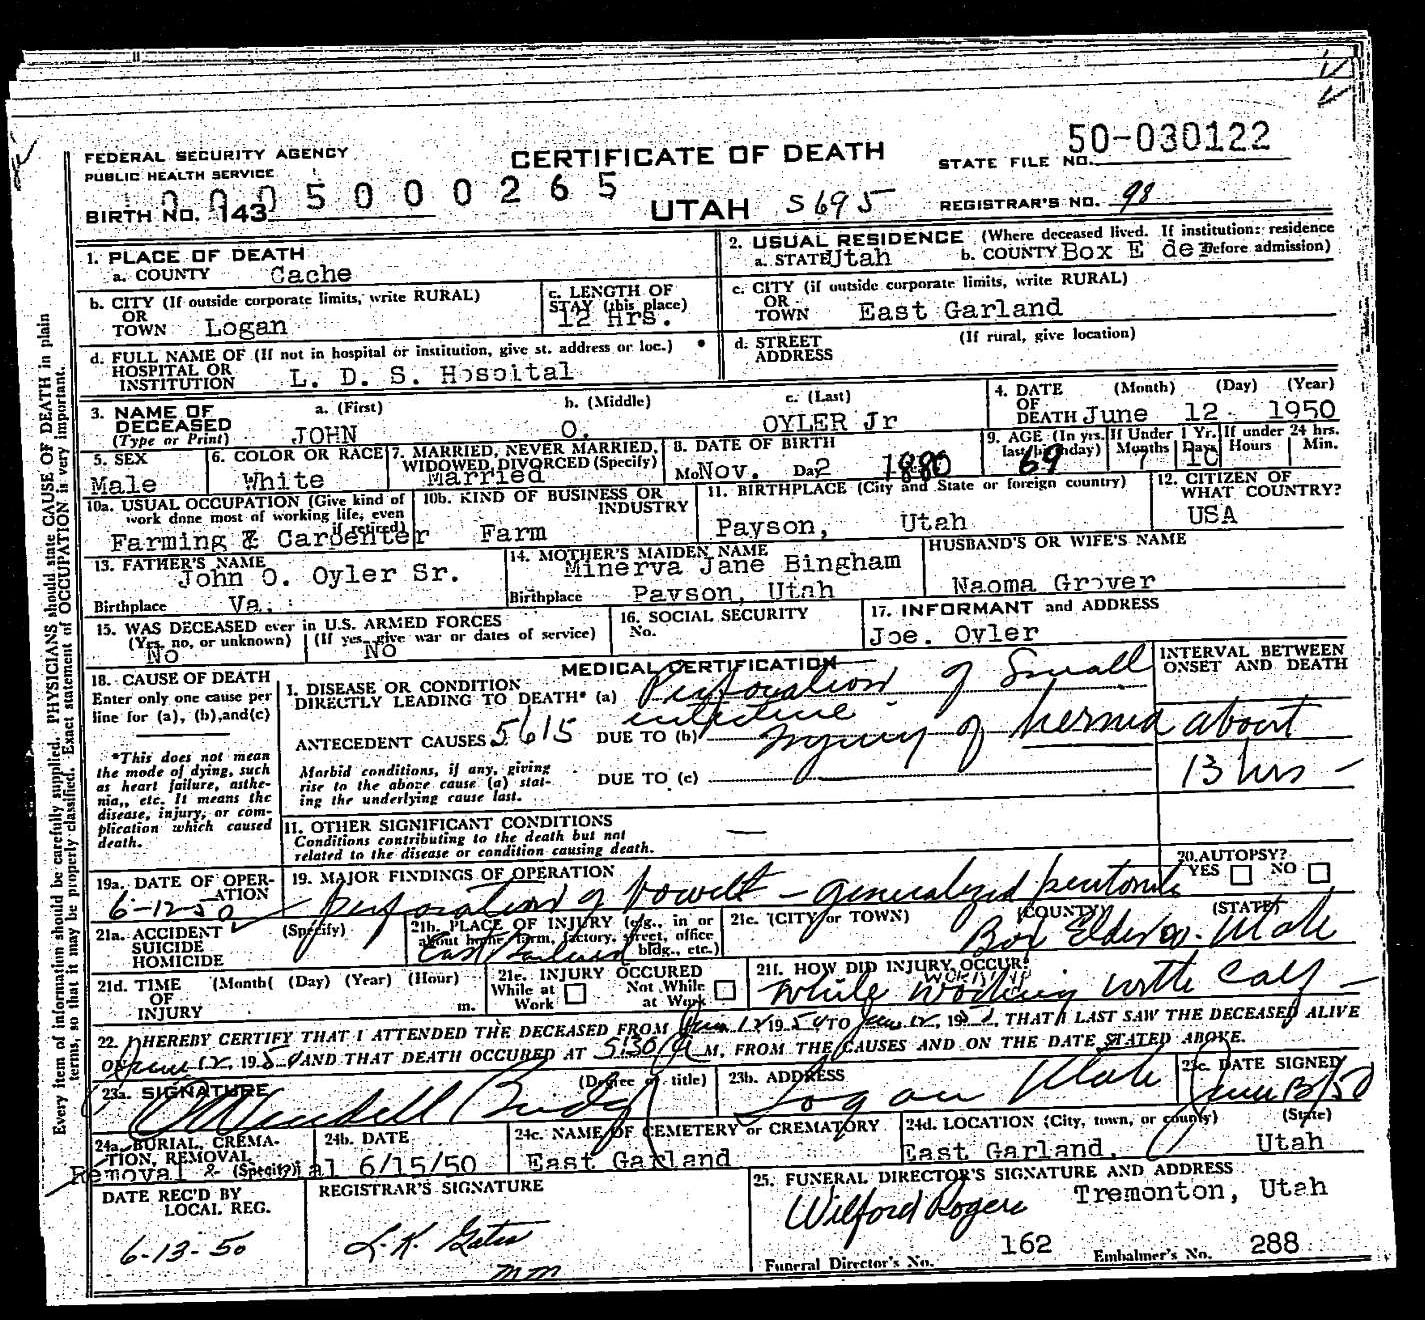 50-030122
FEDERAL SECURITY AGENCY
PUBLIC HEALTH SERVICE
CERTIFICATE OF DEATH
STATE FILE NO.
5000265
BIRTH NO. 143
UTAH S695
REGISTRAR'S NO. 98
1. PLACE OF DEATH
a. COUNTY Cache
2. USUAL RESIDENCE (Where deceased lived. If institution: residence before admission)
a. STATE Utah b. COUNTY Box E de
b. CITY (If outside corporate limits, write RURAL)
OR
TOWN Logan
c. LENGTH OF
STAY (this place)
12 Hrs.
c. CITY (if outside corporate limits, write RURAL)
OR
TOWN East Garland
d. FULL NAME OF (If not in hospital or institution, give st. address or loc.)
HOSPITAL OR
INSTITUTION L. D. S. Hospital
d. STREET
ADDRESS
(If rural, give location)
3. NAME OF
DECEASED
(Type or Print)
a. (First)
JOHN
b. (Middle)
O.
c. (Last)
OYLER Jr
4. DATE (Month) (Day) (Year)
OF
DEATH June 12 1950
5. SEX
Male
6. COLOR OR RACE
White
7. MARRIED, NEVER MARRIED,
WIDOWED, DIVORCED (Specify)
Married
8. DATE OF BIRTH
Mo Nov. Day 2 1880
9. AGE (In yrs.
last birthday)
69
If Under 1 Yr.
Months 7 Days 10
If under 24 hrs.
Hours Min.
10a. USUAL OCCUPATION (Give kind of
work done most of working life, even
if retired)
Farming & Carpenter
10b. KIND OF BUSINESS OR
INDUSTRY
Farm
11. BIRTHPLACE (City and State or foreign country)
Payson, Utah
12. CITIZEN OF
WHAT COUNTRY?
USA
13. FATHER'S NAME
John O. Oyler Sr.
Birthplace Va.
14. MOTHER'S MAIDEN NAME
Minerva Jane Bingham
Birthplace Payson, Utah
HUSBAND'S OR WIFE'S NAME
Naoma Grover
15. WAS DECEASED ever in U.S. ARMED FORCES
(Yes, no, or unknown) (If yes, give war or dates of service)
No NO
16. SOCIAL SECURITY
No.
17. INFORMANT and ADDRESS
Joe. Oyler
MEDICAL CERTIFICATION
INTERVAL BETWEEN
ONSET AND DEATH
18. CAUSE OF DEATH
Enter only one cause per
line for (a), (b), and (c)
*This does not mean
the mode of dying, such
as heart failure, asthe-
nia,, etc. It means the
disease, injury, or com-
plication which caused
death.
1. DISEASE OR CONDITION
DIRECTLY LEADING TO DEATH* (a) Perforation of Small
intestine
ANTECEDENT CAUSES 5615 DUE TO (b) Injury of hernia about
13 hrs -
Morbid conditions, if any, giving
rise to the above cause (a) stat-
ing the underlying cause last.
DUE TO (c)
11. OTHER SIGNIFICANT CONDITIONS
Conditions contributing to the death but not
related to the disease or condition causing death.
19a. DATE OF OPER-
ATION
6-12-50
19. MAJOR FINDINGS OF OPERATION
perforation of bowel - generalized peritonitis
20. AUTOPSY?
YES NO
21a. ACCIDENT (Specify)
SUICIDE
HOMICIDE
21b. PLACE OF INJURY (e.g., in or
about home, farm, factory, street, office
bldg., etc.)
East Garland
21c. (CITY or TOWN) (COUNTY) (STATE)
Box Elder Co. Utah
21d. TIME (Month( (Day) (Year) (Hour)
OF
INJURY m.
21e. INJURY OCCURED
While at Work Not While at Work
21f. HOW DID INJURY OCCUR?
WORKING
While working with calf
22. I HEREBY CERTIFY THAT I ATTENDED THE DECEASED FROM June 12 1950 TO June 12, 1950, THAT I LAST SAW THE DECEASED ALIVE
ON June 12, 1950 AND THAT DEATH OCCURED AT 5:30 A M, FROM THE CAUSES AND ON THE DATE STATED ABOVE.
23a. SIGNATURE (Degree or title)
23b. ADDRESS
Logan Utah
23c. DATE SIGNED
June 13/50
24a. BURIAL, CREMA-
TION, REMOVAL
(Specify)
Removal & al
24b. DATE
6/15/50
24c. NAME OF CEMETERY or CREMATORY
East Garland
24d. LOCATION (City, town, or county) (State)
East Garland, Utah
DATE REC'D BY
LOCAL REG.
6-13-50
REGISTRAR'S SIGNATURE
L. K. Gates
mm
25. FUNERAL DIRECTOR'S SIGNATURE AND ADDRESS
Wilford Rogers Tremonton, Utah
Funeral Director's No. 162 Embalmer's No. 288
Every item of information should be carefully supplied. PHYSICIANS should state CAUSE OF DEATH in plain
terms, so that it may be properly classified. Exact statement of OCCUPATION is very important.